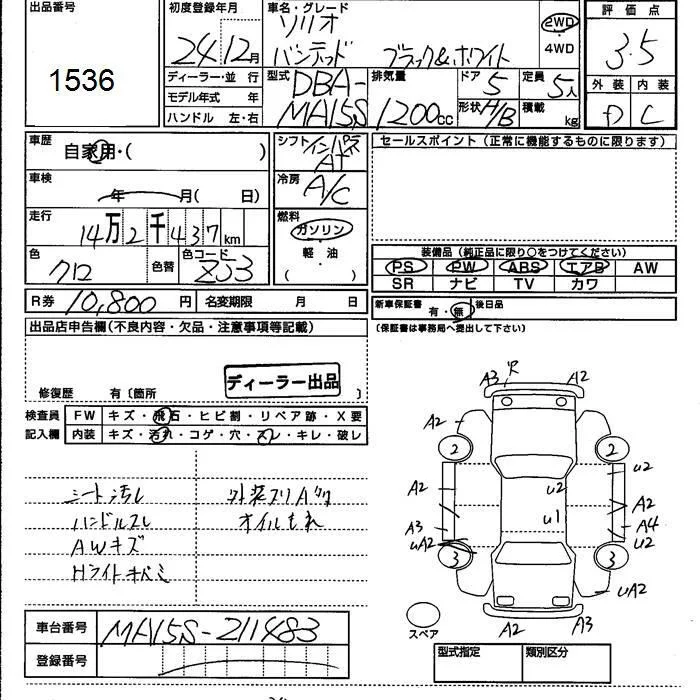 出品番号
1536
初度登録年月
24 12月
ディーラー・並 行
モデル年式 年
ハンドル 左・右
車名・グレード
ソリオ
バンディット ブラック&ホワイト
2WD
・
4WD
型式 DBA-
MA15S
排気量
1200cc
ドア 5
形状 H/B
定員 5人
積載 kg
評価点
3.5
外装 内装
D C
車歴
自家用・( )
車検
年 月( 日)
走行
14万2千437km
色
クロ
色替
色コード
ZJ3
シフト
インパネ
AT
冷房
A/C
燃料
ガソリン
・
軽・油
( )
セールスポイント(正常に機能するものに限ります)
装備品(純正品に限り○をつけてください)
PS PW ABS エアB AW
SR ナビ TV カワ
R券 10,800円
名変期限 月 日
新車保証書 有・無 後日品
(保証書は事務局へ提出して下さい)
出品店申告欄(不良内容・欠品・注意事項等記載)
ディーラー出品
修復歴 有〔箇所 〕
検査員
記入欄
FW キズ・飛石・ヒビ割・リペア跡・X要
内装 キズ・汚れ・コゲ・穴・スレ・キレ・破レ
シート汚し
ハンドルスレ
AWキズ
Hライトキバミ
外装スリAタタ
オイルもれ
A3 A2
A2
2 2
U2 U2
A2 A2
U1
A3 A4
UA2 U2
3 3
UA2
スペア
A2 A3
車台番号 MA15S-211483
登録番号
型式指定 類別区分